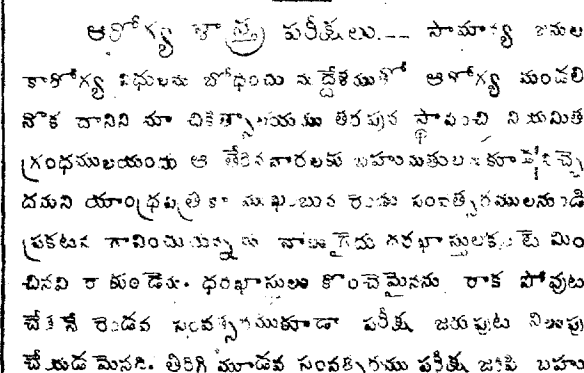 ఆరోగ్య శాస్త్ర పరీక్షలు.-- సామాన్య జనుల
కారోగ్య విధులను బోధించు నుద్దేశముతో ఆరోగ్య మండలి
నొక దానిని మా చికిత్సాలయము తరపున స్థాపించి నియమిత
గ్రంధములయందు ఆ తేరినవారలకు బహుమతుల
దమని యాంధ్రపత్రికా ముఖంబున రెండు సంవత్సరములనుండి
ప్రకటన గావించుచున్నను నాలుగైదు దరఖాస్తులకంటె మిం
చినవి రాకుండెను. ధరఖాసులు కొంచెమైనను రాక పోవుట
చేతనే రెండవ సంవత్సరముకూడా పరీక్ష జరుపుట నిలుపు
చేయడమైనది. తిరిగి మూడవ సంవత్సరము పరీక్ష జరిపి బహు